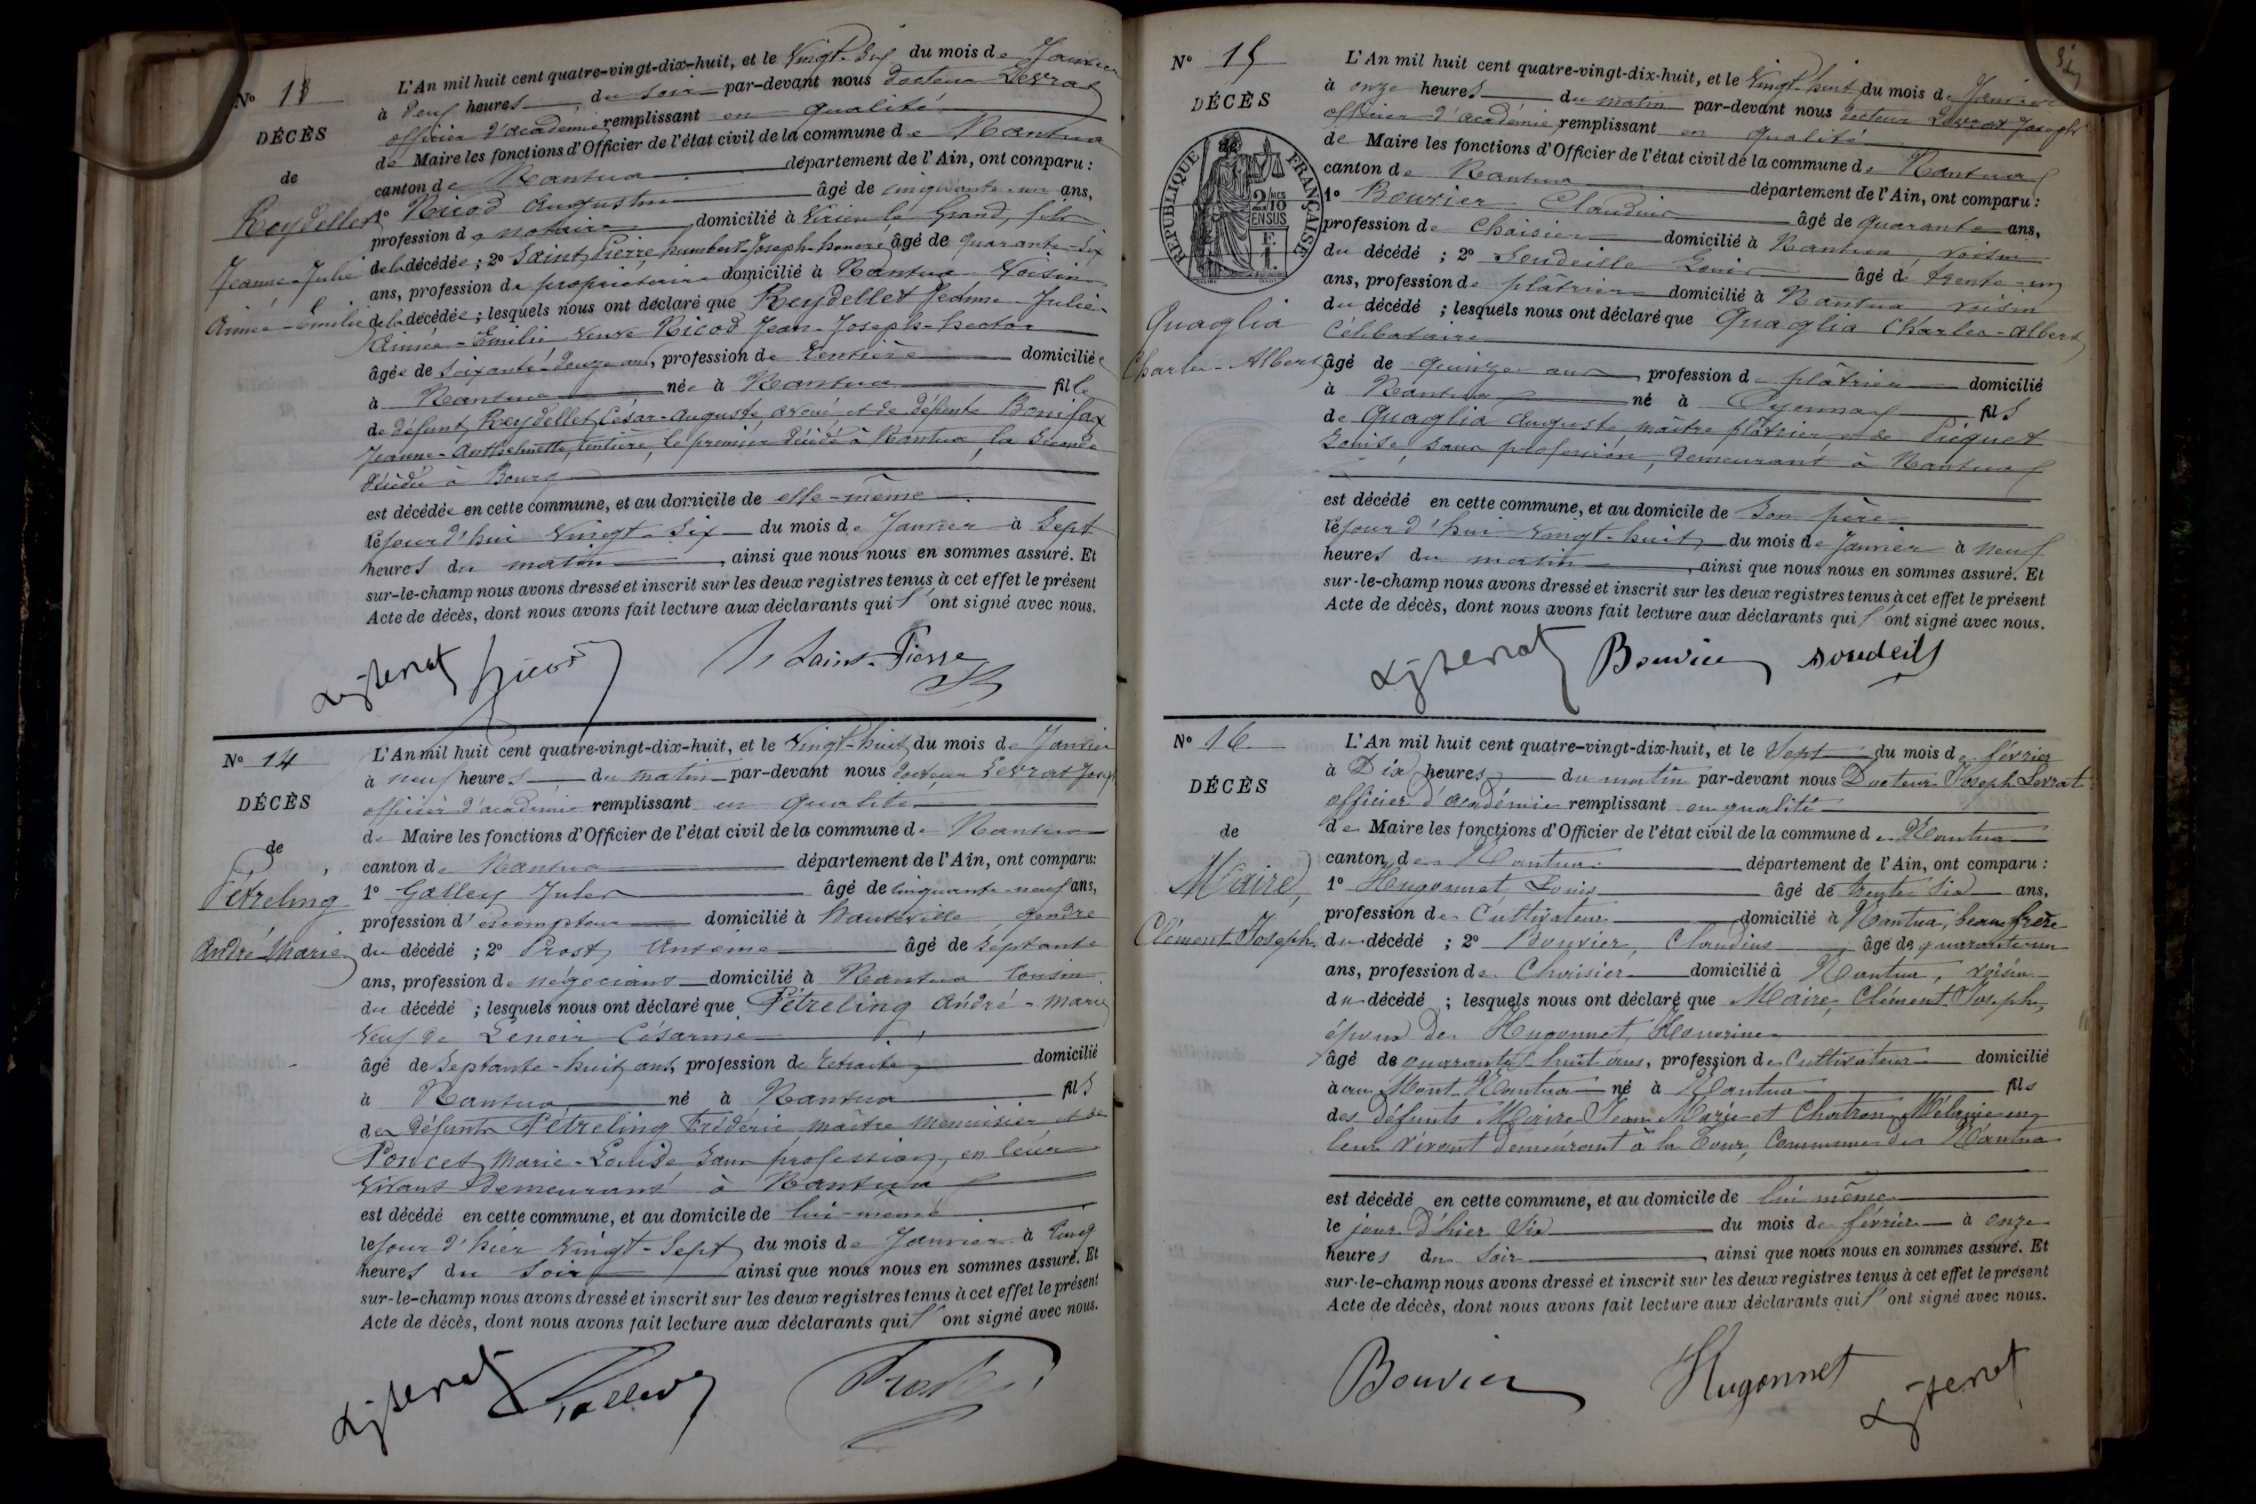 No 13
DÉCÈS
de
Reydellet
Jeanne-Julie
Aimée-Emilie
L'An mil huit cent quatre-vingt-dix-huit, et le Vingt-Six du mois de Janvier
à heures du soir par-devant nous docteur Levrat
officier d'académie remplissant en qualité
de Maire les fonctions d'Officier de l'état civil de la commune de Nantua
canton de Nantua département de l'Ain, ont comparu :
1º Nicod Augustin âgé de cinquante-un ans,
profession de notaire domicilié à Virieu le Grand, fils
de la décédée ; 2º Saint-Pierre, humbert-Joseph-honoré âgé de quarante-six
ans, profession de propriétaire domicilié à Nantua Voisin
de la décédée ; lesquels nous ont déclaré que Reydellet Jeanne-Julie-
Aimée-Emilie veuve Nicod Jean-Joseph-hector
âgée de soixante-douze ans, profession de rentière domiciliée
à Nantua née à Nantua fille
de défunt Reydellet César-Auguste, avoué et de défunte Bonifax
Jeanne-Anthelmette, rentière, le premier décédé à Nantua, la seconde
décédée à Bourg
est décédée en cette commune, et au domicile de elle-même
le jour d'hui Vingt-Six du mois de Janvier à Sept
heures du matin, ainsi que nous nous en sommes assuré. Et
sur-le-champ nous avons dressé et inscrit sur les deux registres tenus à cet effet le présent
Acte de décès, dont nous avons fait lecture aux déclarants qui l'ont signé avec nous.
Saint-Pierre
No 14
DÉCÈS
de
Pétreling
André Marie
L'An mil huit cent quatre-vingt-dix-huit, et le Vingt-huit du mois de Janvier
à neuf heures du matin par-devant nous docteur Levrat Joseph
officier d'académie remplissant en qualité
de Maire les fonctions d'Officier de l'état civil de la commune de Nantua
canton de Nantua département de l'Ain, ont comparu:
1º Galley Jules âgé de cinquante-neuf ans,
profession d'escompteur domicilié à hauteville gendre
du décédé ; 2º Prost, Antoine âgé de septante
ans, profession de négociant domicilié à Nantua cousin
du décédé ; lesquels nous ont déclaré que Pétreling André-Marie
Veuf de Lenoir Césarine
âgé de septante-huit ans, profession de retraité domicilié
à Nantua né à Nantua fils
des défunts Pétreling Frédéric maître menuisier et de
Poncet Marie-Louise sans profession, en leur
vivant demeurant à Nantua
est décédé en cette commune, et au domicile de lui-même
le jour d'hier Vingt-Sept du mois de Janvier à cinq
heures du soir ainsi que nous nous en sommes assuré. Et
sur-le-champ nous avons dressé et inscrit sur les deux registres tenus à cet effet le présent
Acte de décès, dont nous avons fait lecture aux déclarants qui l'ont signé avec nous.
No 15
DÉCÈS
RÉPUBLIQUE FRANÇAISE
2/10 EN SUS
Quaglia
Charles-Albert
L'An mil huit cent quatre-vingt-dix-huit, et le Vingt-huit du mois de Janvier
à onze heures du matin par-devant nous docteur Levrat Joseph
officier d'académie remplissant en qualité
de Maire les fonctions d'Officier de l'état civil de la commune de Nantua
canton de Nantua département de l'Ain, ont comparu :
1º Bouvier Claudius âgé de quarante ans,
profession de Chaisier domicilié à Nantua, voisin
du décédé ; 2º Soudeille Louis âgé de trente-un
ans, profession de plâtrier domicilié à Nantua voisin
du décédé ; lesquels nous ont déclaré que Quaglia Charles-Albert
célibataire
âgé de quinze ans, profession de plâtrier domicilié
à Nantua né à Oyonnax fils
de Quaglia Auguste, maître plâtrier, et de Picquet
Louise, sans profession, demeurant à Nantua
est décédé en cette commune, et au domicile de Son père
le jour d'hui Vingt-huit du mois de Janvier à neuf
heures du matin, ainsi que nous nous en sommes assuré. Et
sur-le-champ nous avons dressé et inscrit sur les deux registres tenus à cet effet le présent
Acte de décès, dont nous avons fait lecture aux déclarants qui l'ont signé avec nous.
Bouvier
No 16
DÉCÈS
de
Maire,
Clément Joseph
L'An mil huit cent quatre-vingt-dix-huit, et le Sept du mois de février
à Dix heures du matin par-devant nous Docteur Joseph Levrat
officier d'académie remplissant en qualité
de Maire les fonctions d'Officier de l'état civil de la commune de Nantua
canton de Nantua département de l'Ain, ont comparu :
1º Hugonnet Louis âgé de trente six ans,
profession de Cultivateur domicilié à Nantua, beau frère
du décédé ; 2º Bouvier, Claudius âgé de quarante un
ans, profession de Chaisier domicilié à Nantua, voisin
du décédé ; lesquels nous ont déclaré que Maire, Clément Joseph,
époux de Hugonnet, Honorine
âgé de quarante-huit ans, profession de Cultivateur domicilié
à au Mont Nantua né à Nantua fils
des défunts Maire Jean Marie et Chatron Mélanie en
leur vivant demeurant à la Tour, Commune de Nantua
est décédé en cette commune, et au domicile de lui même
le jour d'hier Six du mois de février à onze
heures du soir, ainsi que nous nous en sommes assuré. Et
sur-le-champ nous avons dressé et inscrit sur les deux registres tenus à cet effet le présent
Acte de décès, dont nous avons fait lecture aux déclarants qui l'ont signé avec nous.
Bouvier Hugonnet